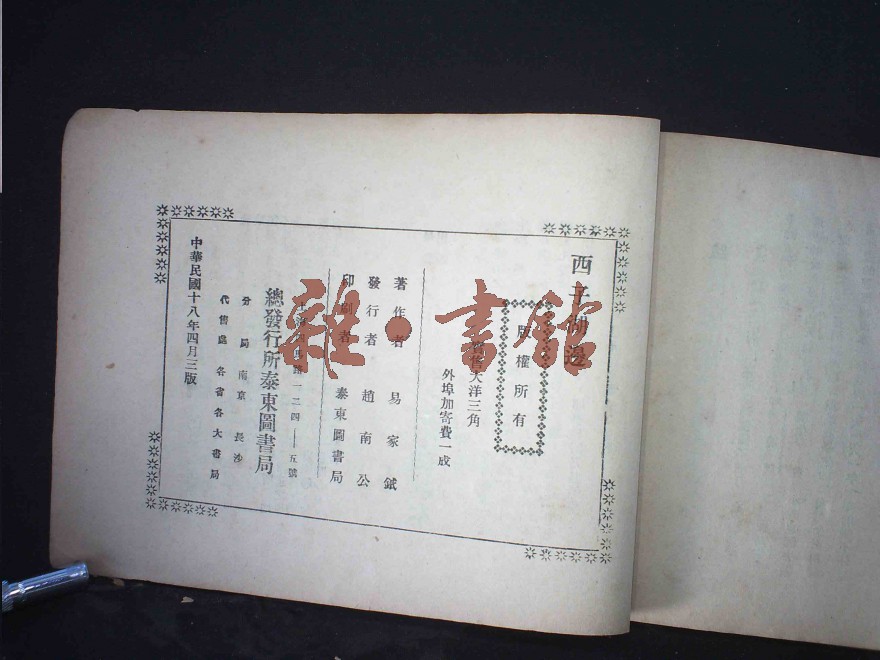 西子湖邊
版權所有
實售大洋三角
外埠加寄費一成
著作者 易家鉞
發行者 趙南公
印刷者 泰東圖書局
上海四馬路一二四——五號
總發行所泰東圖書局
分局 南京 長沙
代售處 各省各大書局
中華民國十八年四月三版
雜·書館